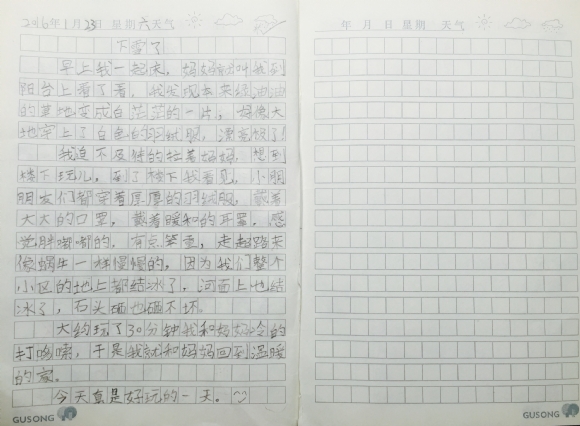 2016年1月23日 星期六 天气
下雪了
早上我一起床，妈妈就叫我到
阳台上看了看，我发现本来绿油油
的草地变成白茫茫的一片，好像大
地穿上了白色的羽绒服，漂亮极了！
我迫不及待的拉着妈妈，想到
楼下玩儿，到了楼下我看见，小朋
朋友们都穿着厚厚的羽绒服，戴着
大大的口罩，戴着暖和的耳罩，感
觉胖嘟嘟的，有点笨重，走起路来
像蜗牛一样慢慢的，因为我们整个
小区的地上都结冰了，河面上也结
冰了，石头砸也砸不坏。
大约玩了30分钟我和妈妈冷的
打哆嗦，于是我就和妈妈回到温暖
的家。
今天真是好玩的一天。
GUSONG
年 月 日 星期 天气
GUSONG